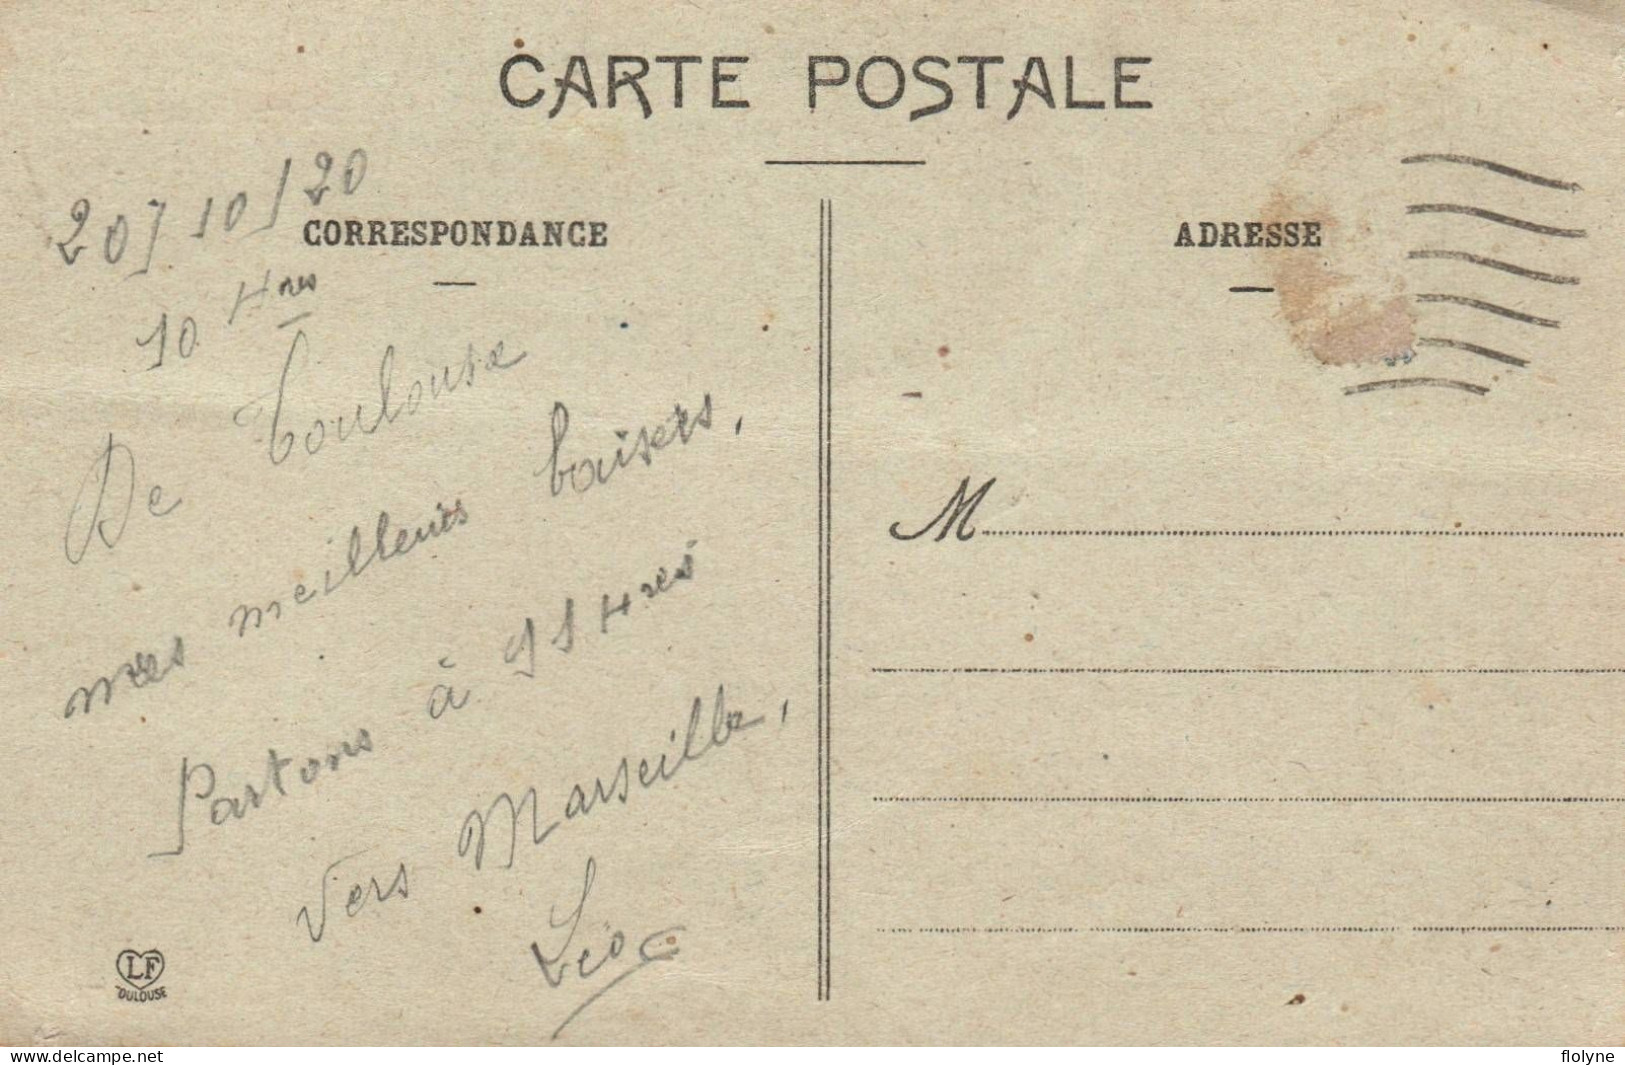 CARTE POSTALE
20/10/20
CORRESPONDANCE
ADRESSE
10 Hres
De Toulouse
mes meilleurs baisers,
Partons à 11 Hres
vers Marseille,
Léo
M
LF
TOULOUSE
www.delcampe.net
flolyne